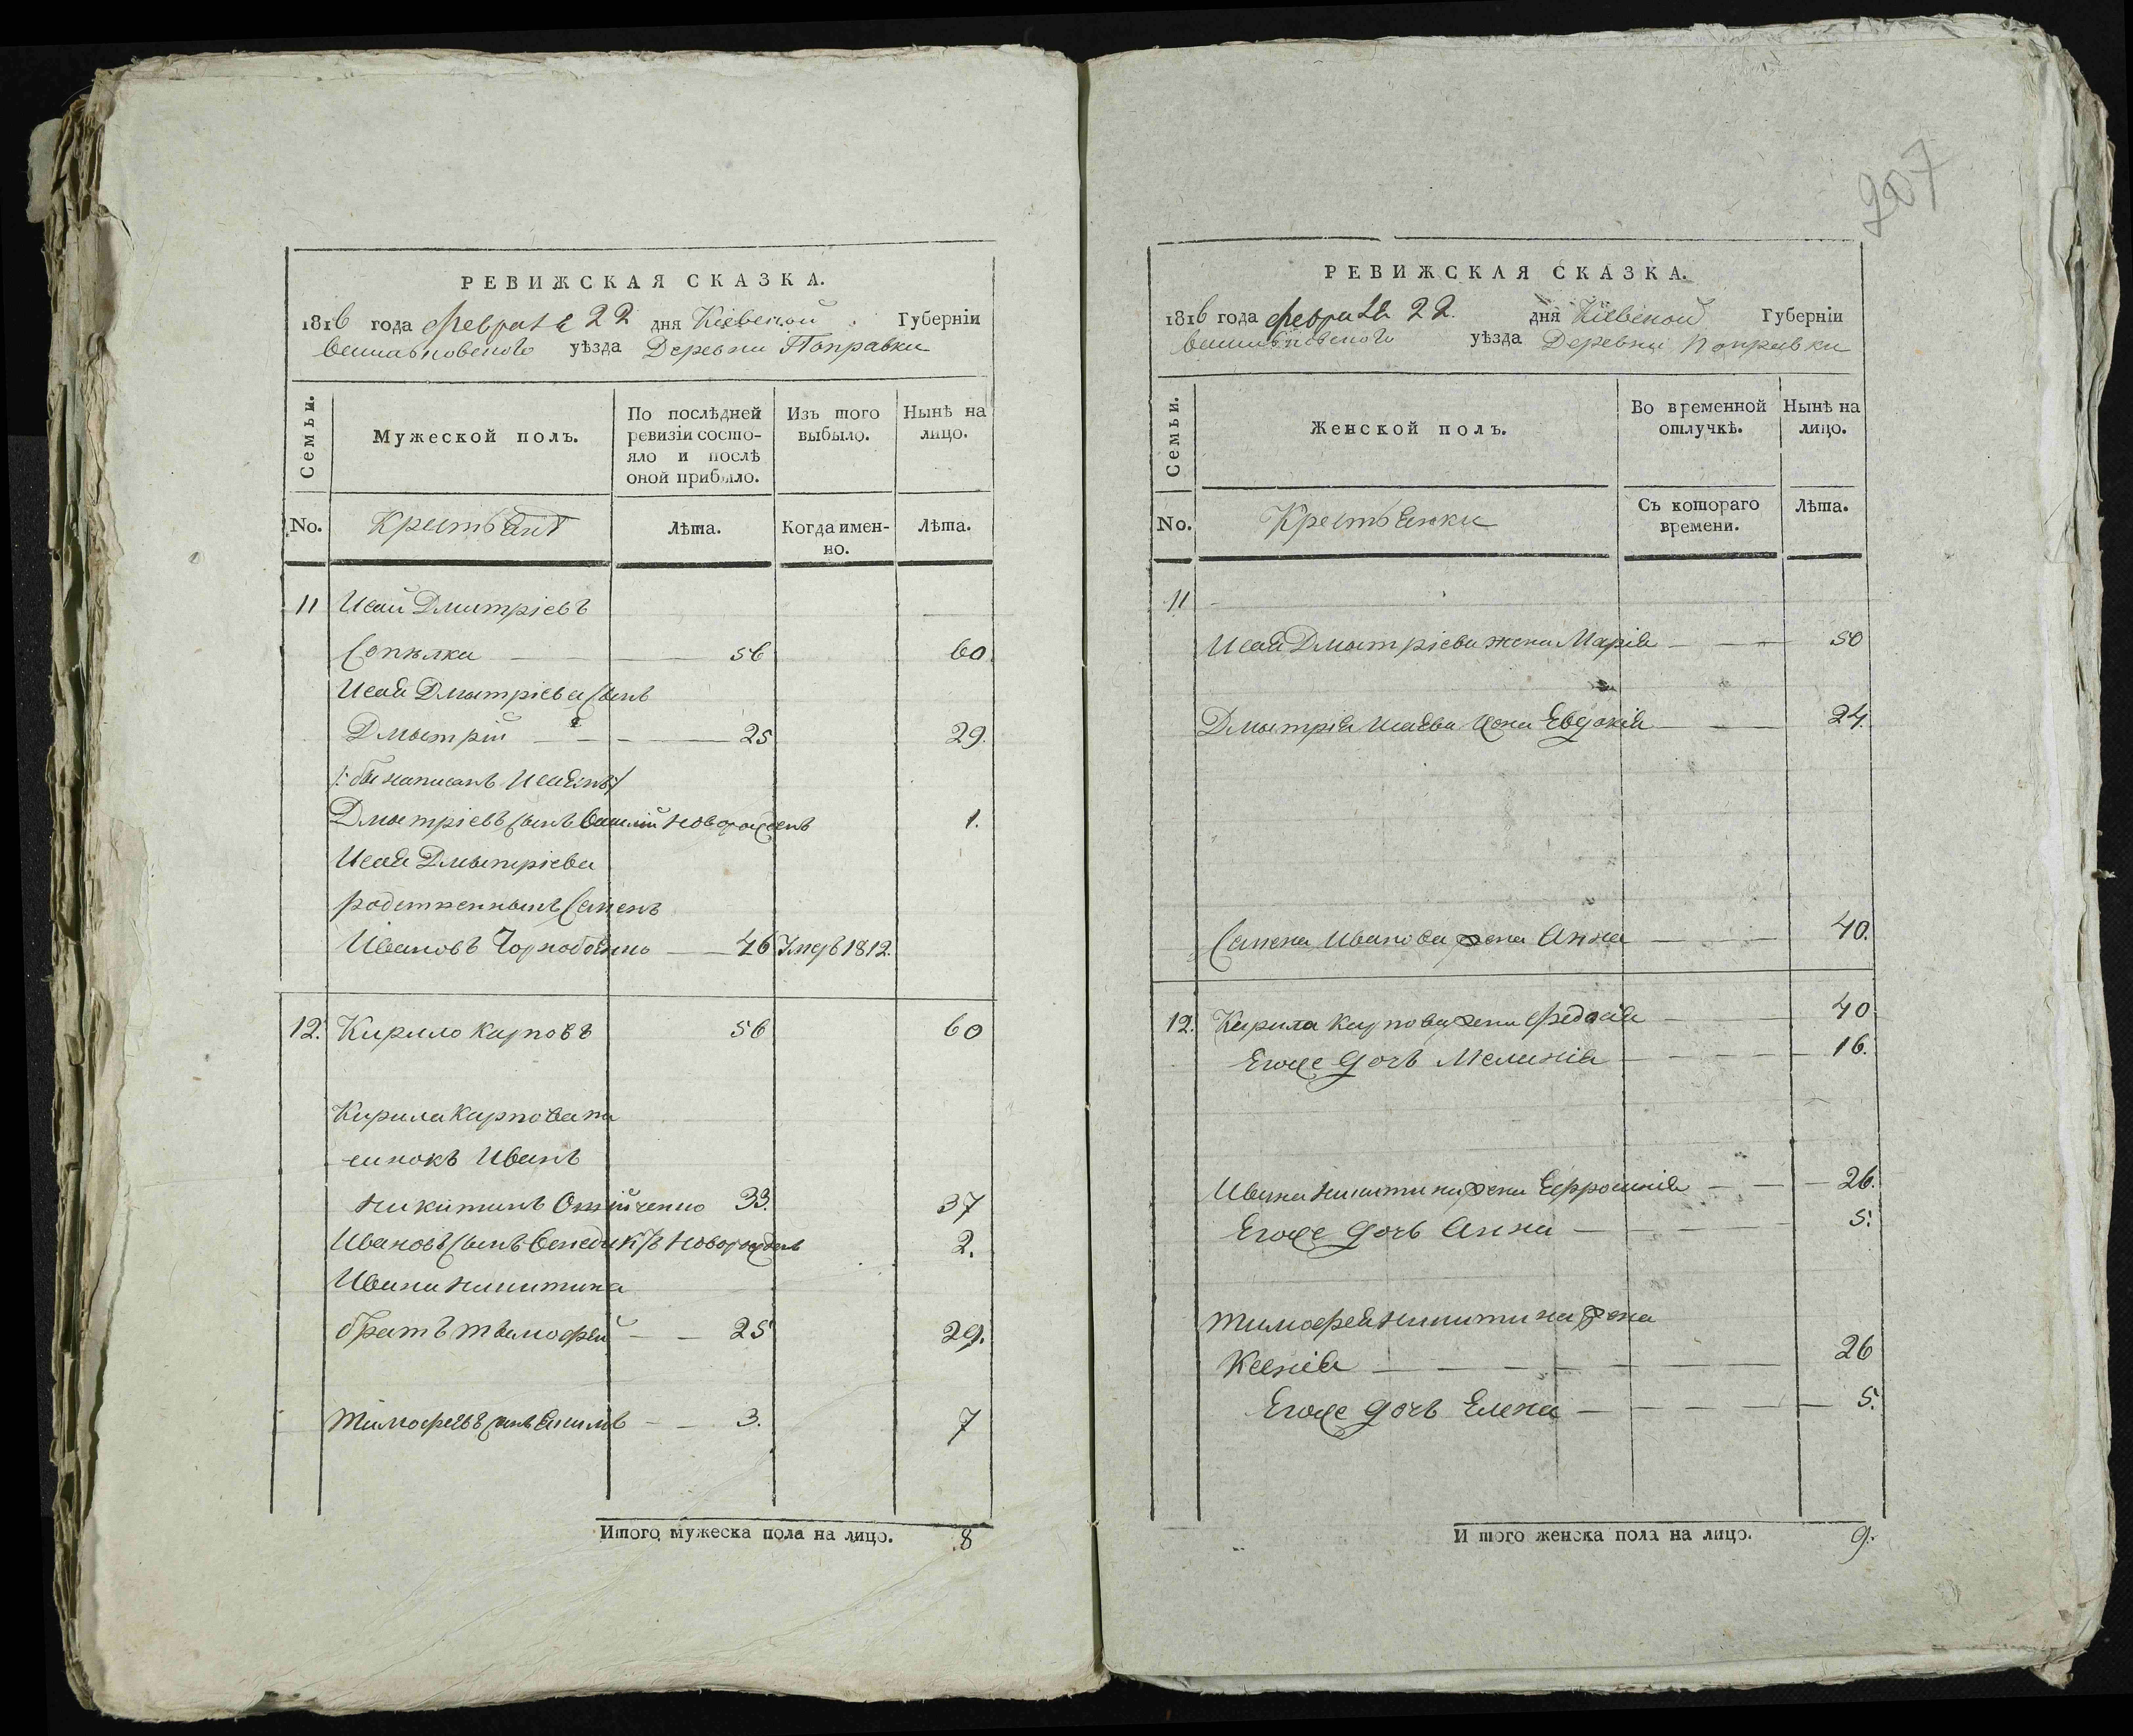 РЕВИЖСКАЯ СКАЗКА.
1816 года февраля 22 дня Кіевской Губерніи
Васильковского уѣзда Деревни Поправки
Семьи.
Мужеской полъ.
По послѣдней ревизіи состояло и послѣ оной прибыло.
Изъ того выбыло.
Нынѣ на лицо.
No.
Крестьянъ
Лѣта.
Когда именно.
Лѣта.
11 Исай Дмитріевъ
Сопѣлка 56 60
Исая Дмытріева сынъ
Дмытрій 25 29.
/: бы написанъ :/
Дмытріевъ сынъ Василій новорожденъ 1.
Исая Дмытріева
родственникъ Семенъ
Ивановъ 46 Умеръ 1812.
12. Кирило Карповъ 56 60
Кирила Карпова па
синокъ Иванъ
Никитинъ 33. 37
Ивановъ сынъ Венедиктъ новорожденъ 2.
Ивана Никитина
братъ Тымофей 25 29.
Тимофеевъ сынъ 3. 7
Итого мужеска пола на лицо. 8
207
РЕВИЖСКАЯ СКАЗКА.
1816 года февраля 22. дня Кіевской Губерніи
Васильковского уѣзда Деревни Поправки
Семьи.
Женской полъ.
Во временной отлучкѣ.
Нынѣ на лицо.
No.
Крестьянки
Съ котораго времени.
Лѣта.
11
Исая Дмытріева жена Марія 50
Дмытрія Исаева жена Евдокія 24.
Семена Иванова жена Анна 40.
12. Кирила Карпова жена Федосія 40
Егоже дочь Меланія 16.
Ивана Никитина жена Ефросинія 26.
Егоже дочь Анна 5.
Тимофея Никитина жена
Ксенія 26
Егоже дочь Елена 5.
И того женска пола на лицо. 9.